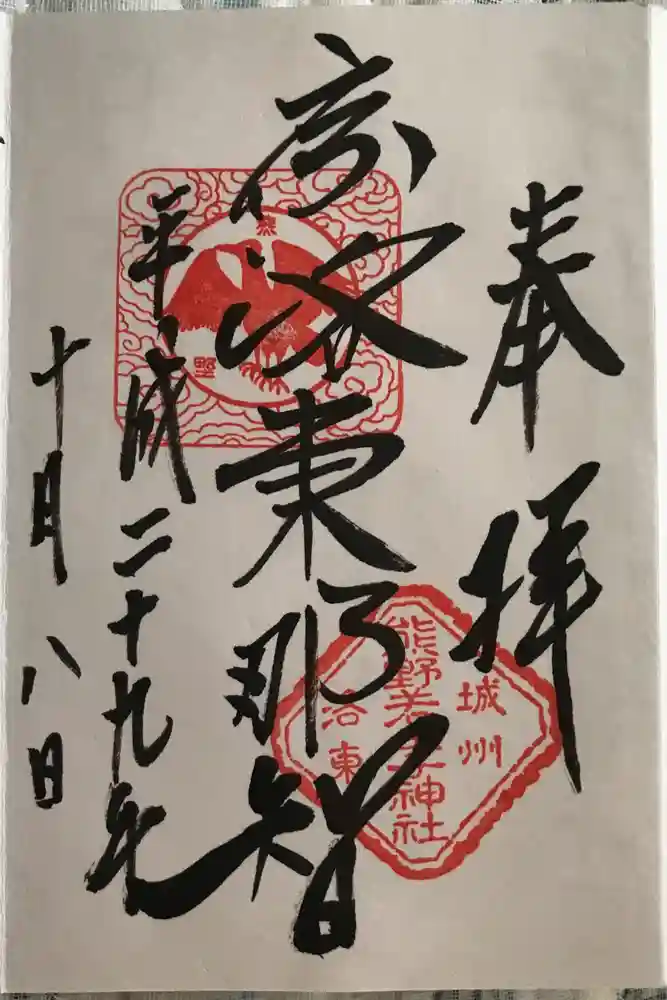 奉拝
京洛東那智
平成二十九年
十月八日
熊野
城州
熊野若王子神社
洛東